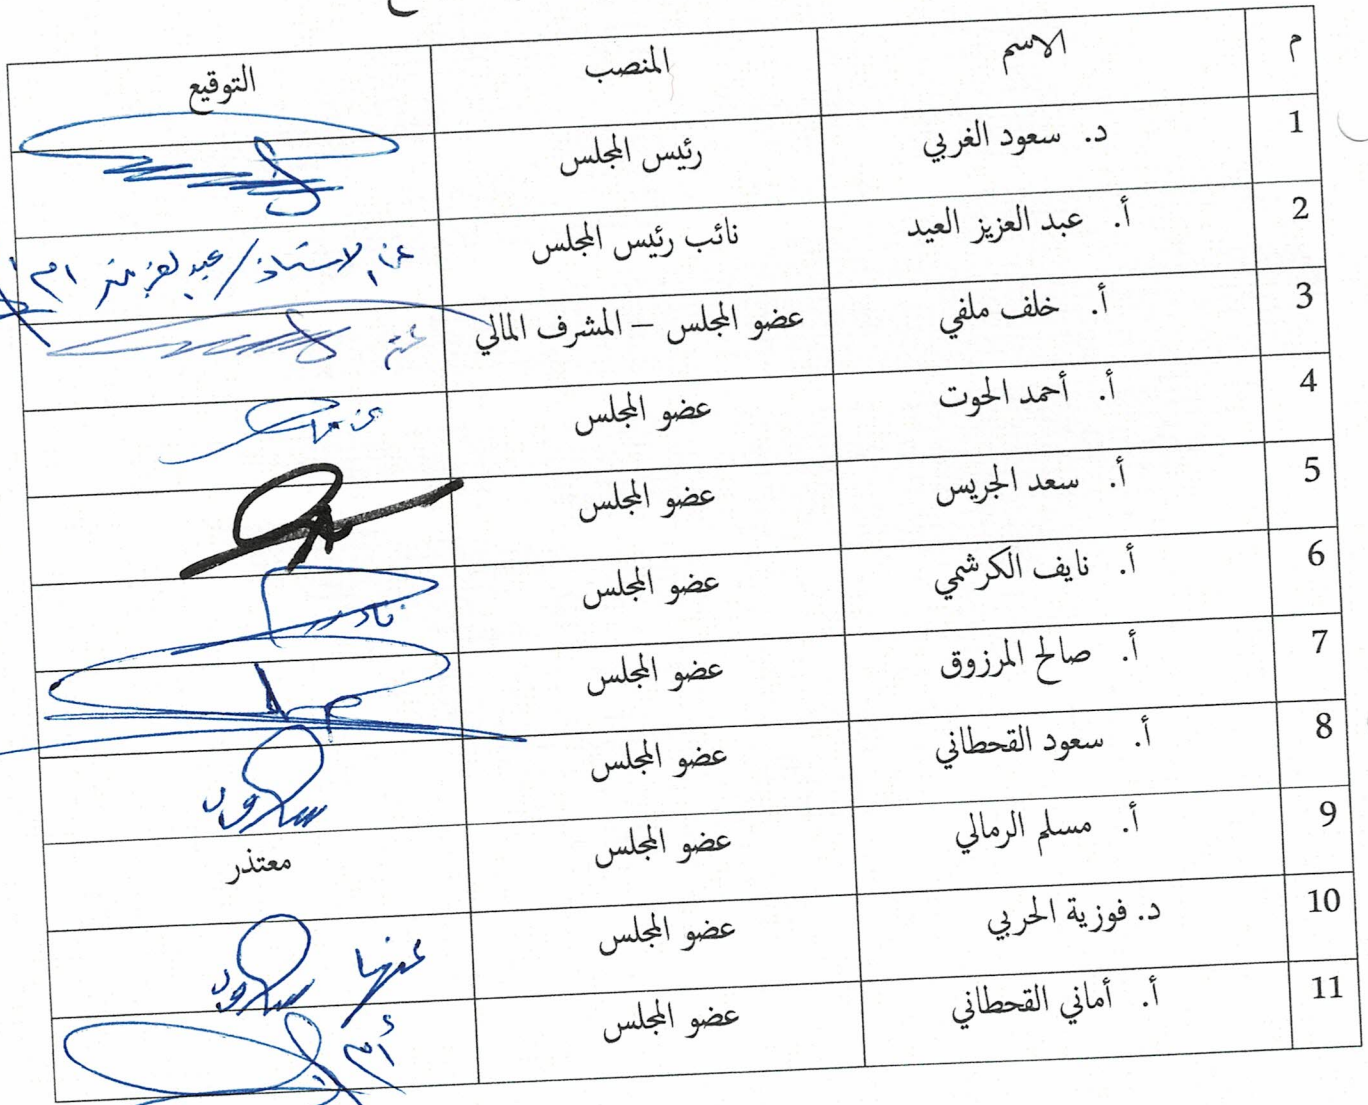 م الاسم المنصب التوقيع
1 د. سعود الغربي رئيس المجلس
2 أ. عبد العزيز العيد نائب رئيس المجلس عن الاستاذ / عبدالعزيز
3 أ. خلف ملفي عضو المجلس – المشرف المالي عنه
4 أ. أحمد الحوت عضو المجلس
5 أ. سعد الجريس عضو المجلس
6 أ. نايف الكرشمي عضو المجلس
7 أ. صالح المرزوق عضو المجلس
8 أ. سعود القحطاني عضو المجلس سعود
9 أ. مسلم الرمالي عضو المجلس معتذر
10 د. فوزية الحربي عضو المجلس عنها سعود
11 أ. أماني القحطاني عضو المجلس